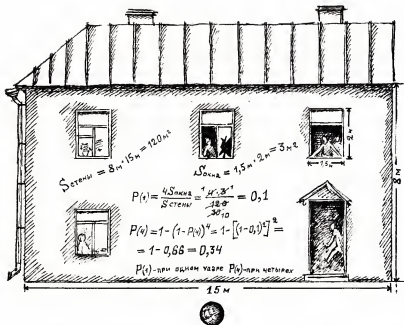 Sстены = 8м·15м = 120м²
Sокна = 1,5м·2м = 3м²
2м
1,5м
8м
P(1) = 4Sокна / Sстены = 4·3 / 120 = 0,1
P(4) = 1-(1-P(1))⁴ = 1-[(1-0,1)²]² =
= 1-0,66 = 0,34
P(1)-при одном ударе P(4)-при четырех
15м